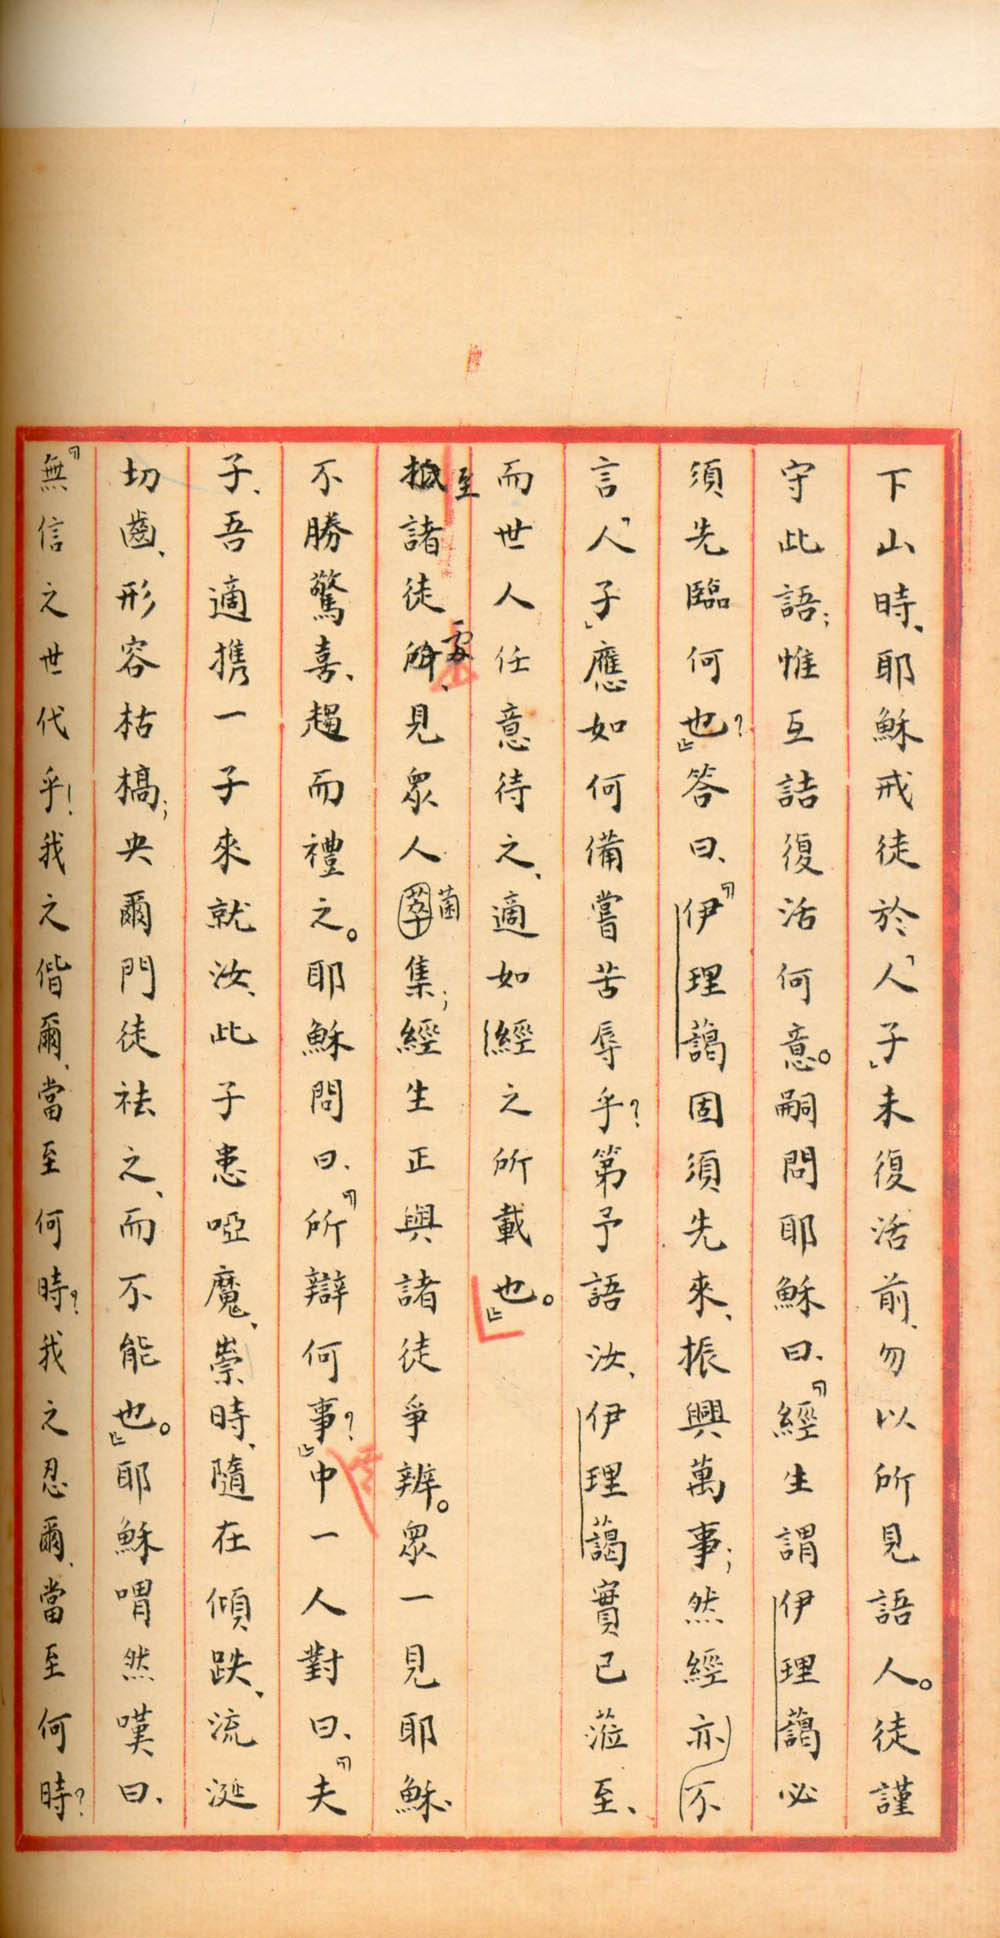 下山時、耶穌戒徒於「人子」未復活前、勿以所見語人。徒謹
守此語；惟互詰復活何意。嗣問耶穌曰、『經生謂伊理藹必
須先臨何也？』答曰、『伊理藹固須先來、振興萬事；然經亦不
言、「人子」應如何備嘗苦辱乎？第予語汝、伊理藹實已蒞至、
而世人任意待之、適如經之所載也。』
至諸徒處、見眾人菌集；經生正與諸徒爭辨。眾一見耶穌、
不勝驚喜、趨而禮之。耶穌問曰、『所辯何事？』中一人對曰、『夫
子、吾適携一子來就汝、此子患啞魔、祟時、隨在傾跌、流涎
切齒、形容枯槁；央爾門徒祛之、而不能也。』耶穌喟然嘆曰、
『無信之世代乎！我之偕爾、當至何時？我之忍爾、當至何時？